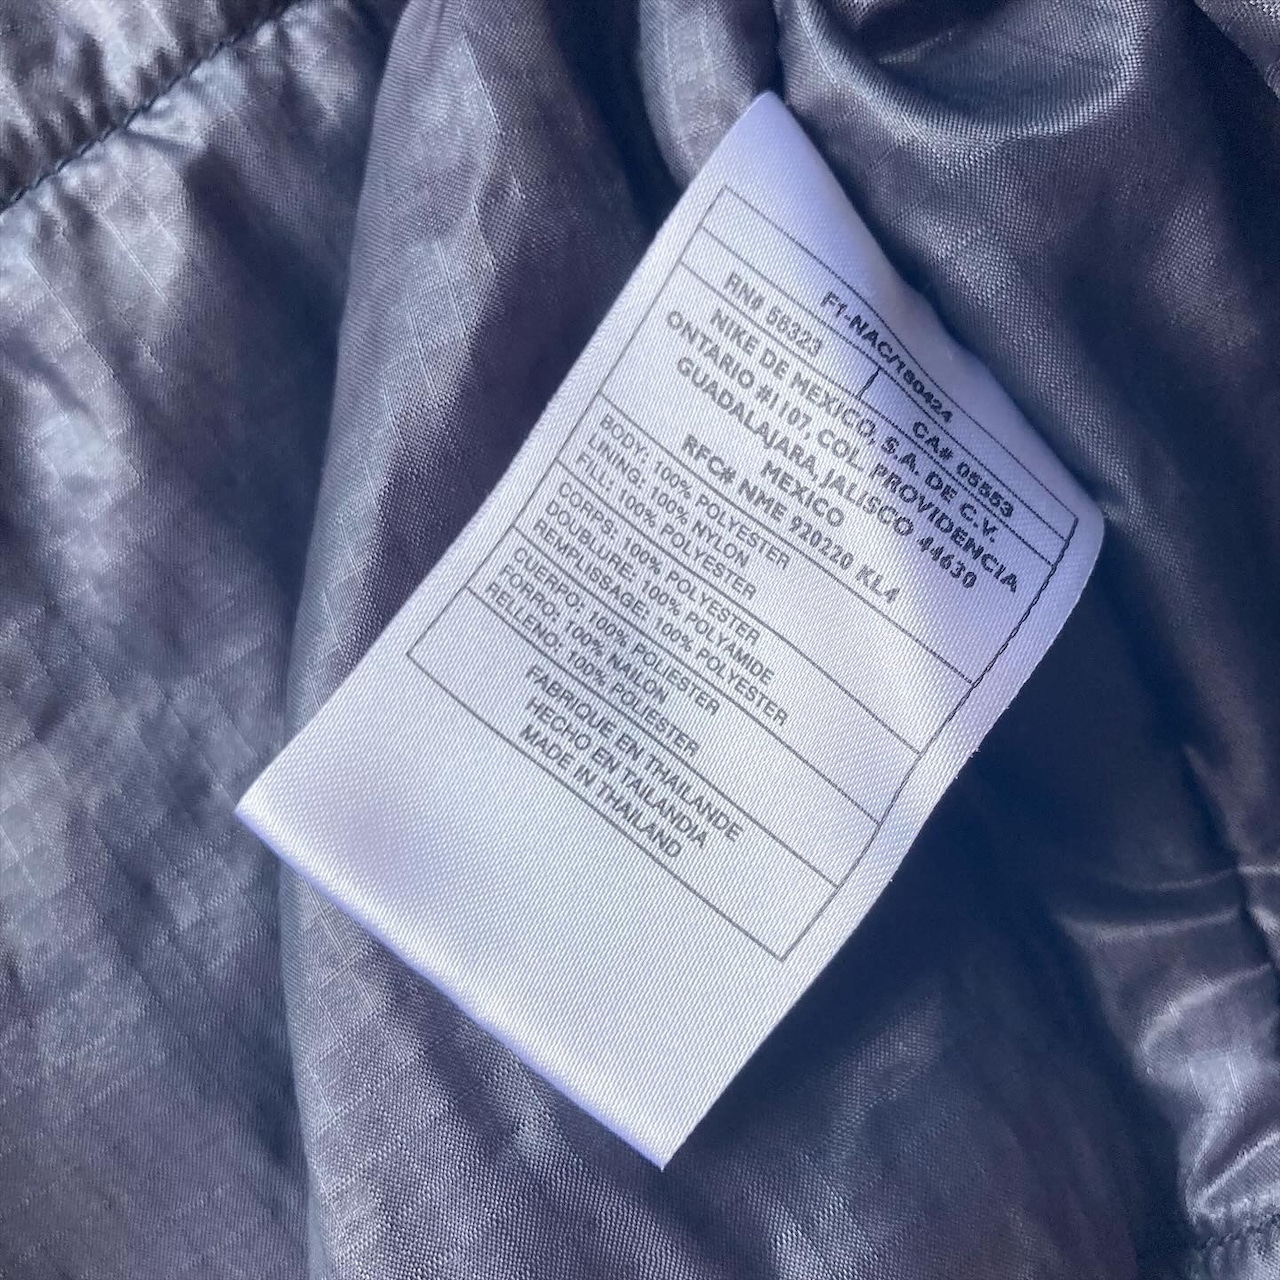 F1-NAC/180424
RN# 56323 CA# 05553
NIKE DE MEXICO, S.A. DE C.V.
ONTARIO #1107, COL. PROVIDENCIA
GUADALAJARA, JALISCO 44630
MEXICO
RFC# NME 920220 KL4
BODY: 100% POLYESTER
LINING: 100% NYLON
FILL: 100% POLYESTER
CORPS: 100% POLYESTER
DOUBLURE: 100% POLYAMIDE
REMPLISSAGE: 100% POLYESTER
CUERPO: 100% POLIESTER
FORRO: 100% NAILON
RELLENO: 100% POLIESTER
FABRIQUE EN THAILANDE
HECHO EN TAILANDIA
MADE IN THAILAND